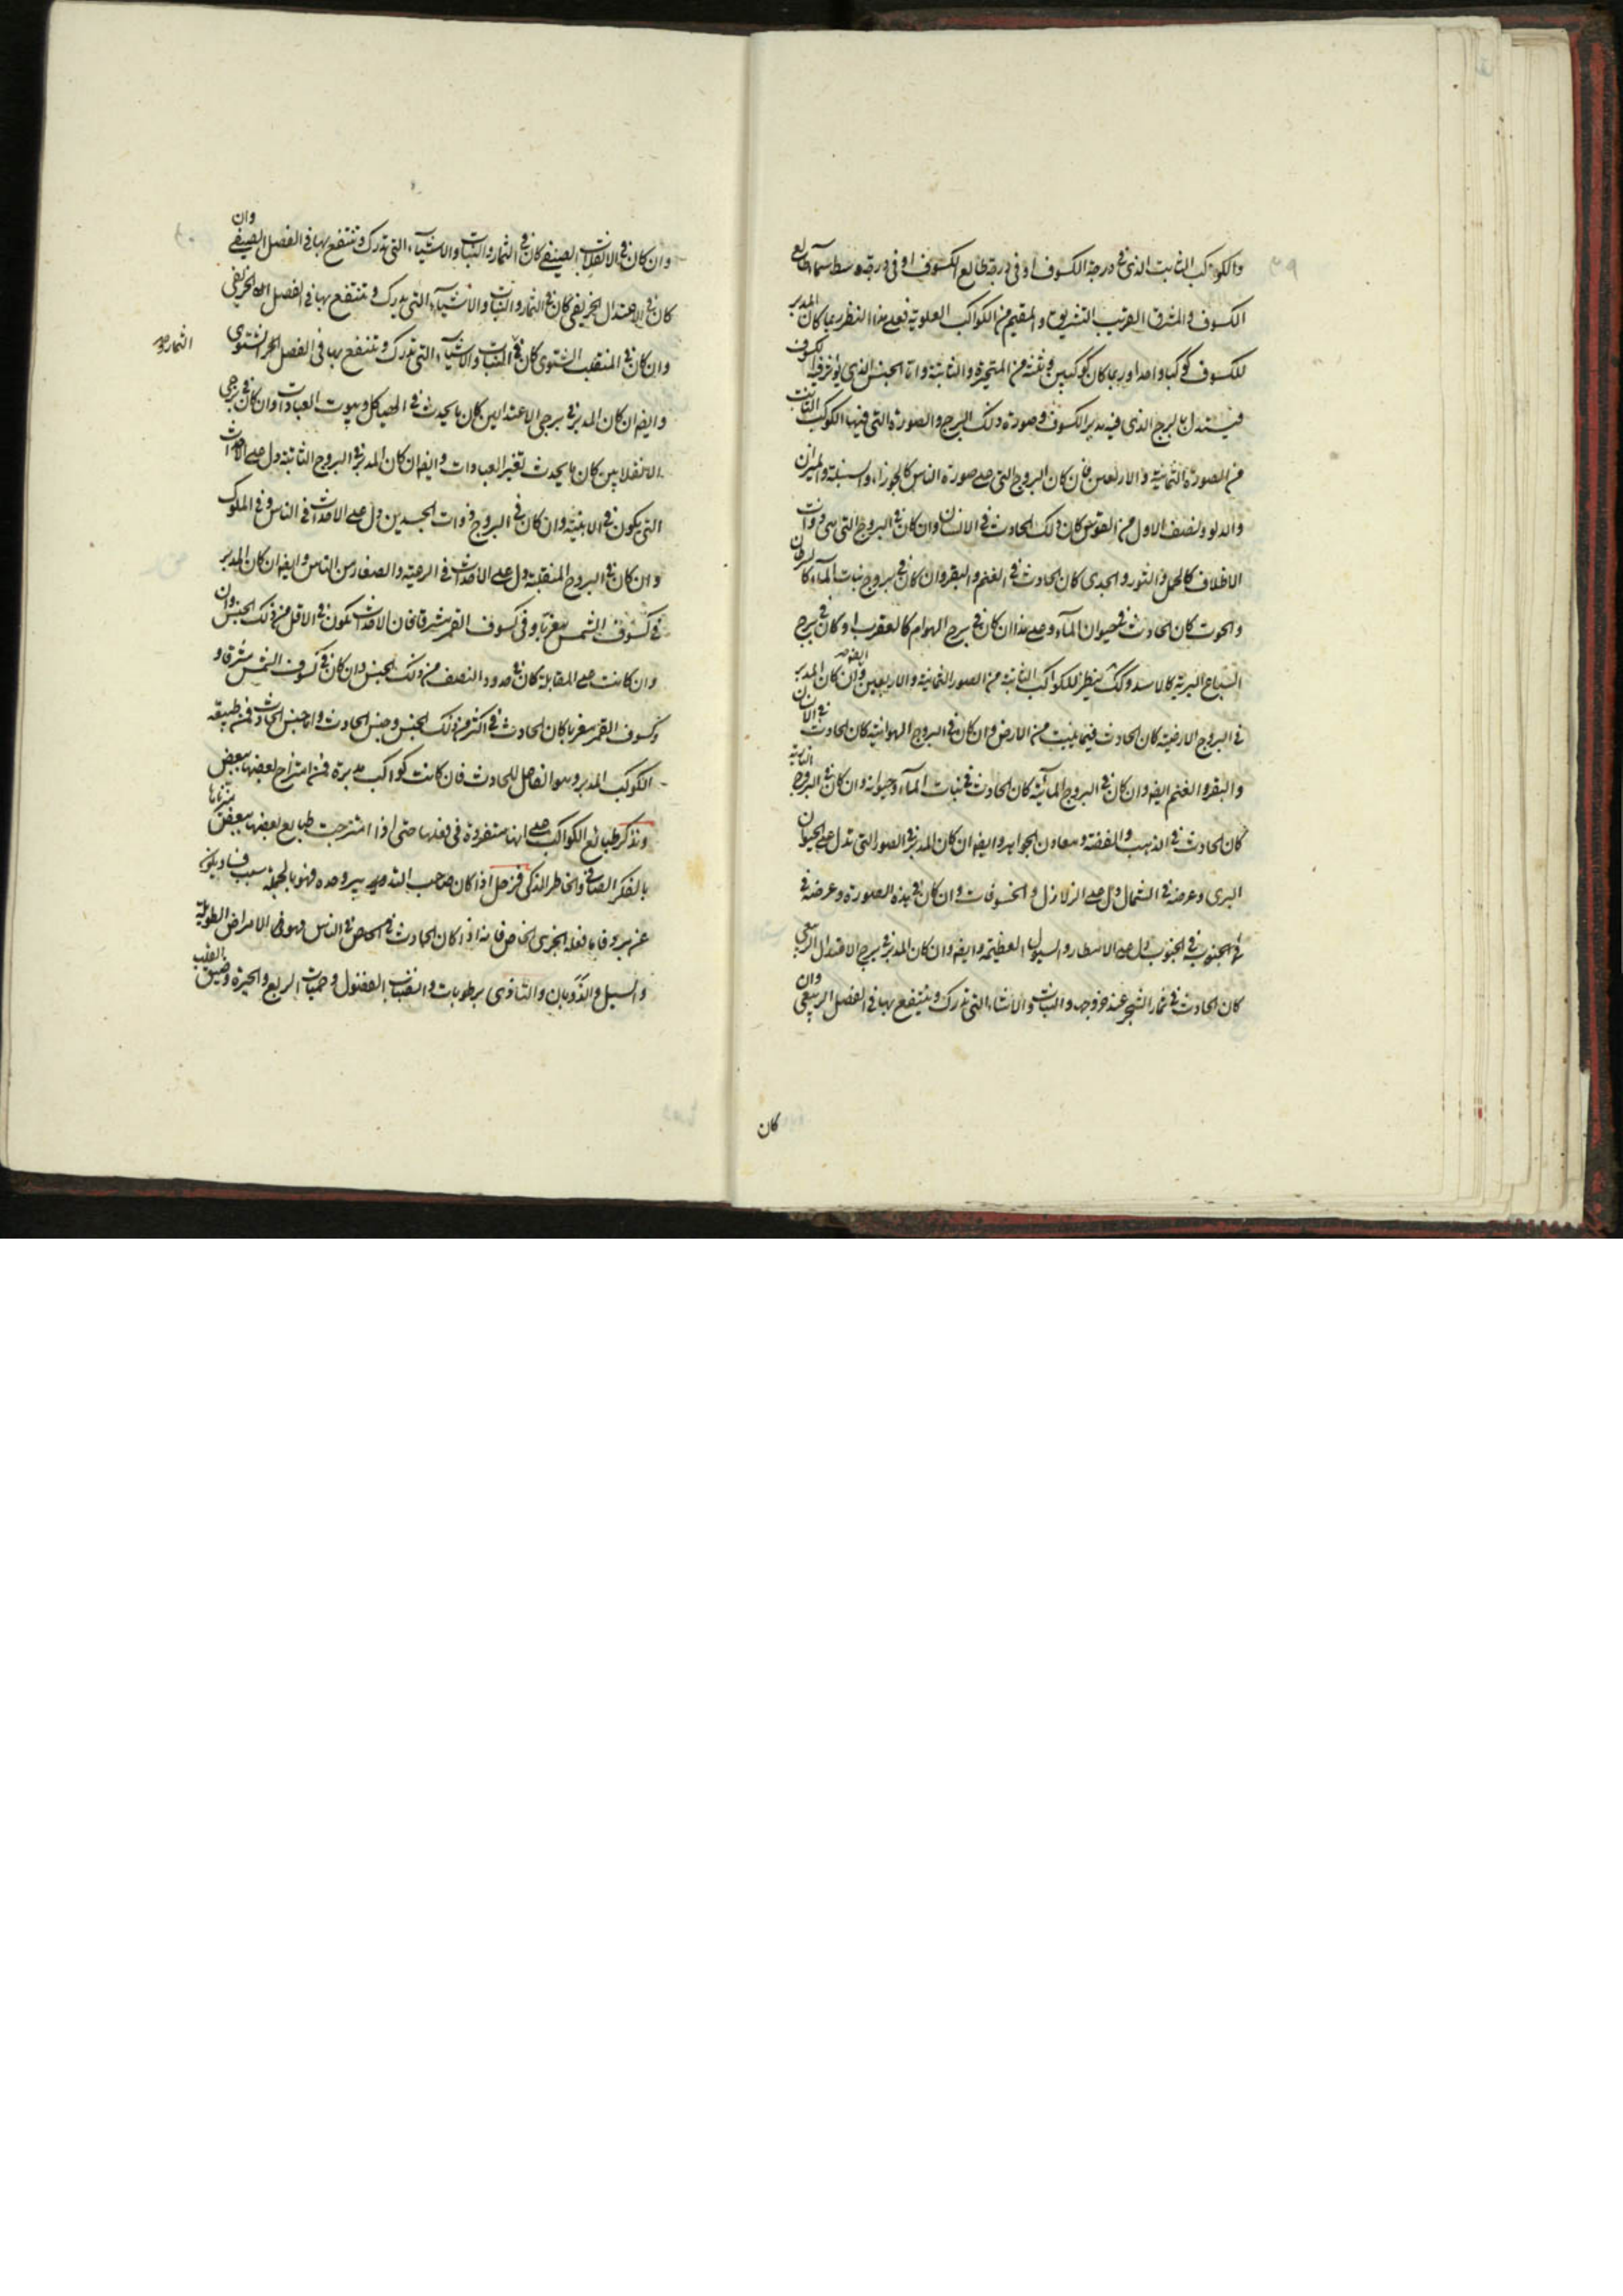 والكوكب الثابت الذى فى درجة الكسوف او فى درجة طالع الكسوف او فى درجة وسط سماء طالع
الكسوف والمشرق القريب التشريق والمقيم من الكواكب العلوية فعلى هذا النظر ربما كان المدبر
للكسوف كوكبا واحدا وربما كان كوكبين وثلثة من المتحيرة والثابتة واما الجنس الذى يؤثر فيه الكسوف
فيستدل بالبرج الذى فيه مدبر الكسوف وصورة ذلك البرج والصورة التى فيها الكوكب الثابت
من الصورة الثمانية والاربعين فان كان البروج التى على صورة الناس كالجوزاء والسنبلة والميزان
والدلو ونصف الاول من القوس كان ذلك الحادث فى الانسان وان كان فى البروج التى هى ذوات
الاظلاف كالحمل والثور والجدى كان الحادث فى الغنم والبقر وان كان فى بروج نبات الماء كالسرطان
والحوت كان الحادث فى حيوان الماء وعلى هذا ان كان فى برج الهوام كالعقرب او كان فى برج
السباع البرية كالاسد وكك ينظر للكواكب الثابتة من الصور الثمانية والاربعين وايضه ان كان المدبر
فى البروج الارضية كان الحادث فيما ينبت من الارض وان كان فى البروج الهوائية كان الحادث فى الانسان
والبقر والغنم ايضه وان كان فى البروج المائية كان الحادث فى نبات الماء وحيوانه وان كان فى البروج النارية
كان الحادث فى الذهب والفضة ومعادن الجواهر وايضه ان كان المدبر فى الصور التى تدل على الحيوان
البرى وعرضه فى الشمال دل على الزلازل والخسوفات وان كان فى هذه الصورة وعرضه فى
الجنوب فى الجنوب دل على الامطار والسيول العظيمة وايضه وان كان المدبر فى برج الاعتدال الربيعى
كان الحادث فى ثمار الشجر عند خروجه والنبات والاشياء التى تدرك وينتفع بها فى الفصل الربيعى وان
كان
وان كان فى الانقلاب الصيفى كان فى الثمار والنبات والاشياء التى تدرك وتنتفع بها فى الفصل الصيفى وان
كان فى الاعتدال الخريفى كان فى الثمار والنبات والاشياء التى يدرك وتنتفع بها فى الفصل الخريفى
وان كان فى المنقلب الشتوى كان فى النبات والاشياء التى تدرك وتنتفع بها فى الفصل الشتوى
الثمار و
وايضه ان كان المدبر فى برجى الاعتدالين كان ما يحدث فى الهيكل وبيوت العبادات وان كان فى برجى
الانقلابين كان ما يحدث تغير العبادات وايضه ان كان المدبر فى البروج الثابتة دل على الاحداث
التى يكون فى الابنية وان كان فى البروج ذوات الجسدين دل على الاحداث فى الناس وفى الملوك
وان كان فى البروج المنقلبة دل على الاحداث فى الرعية والصغار من الناس وايضه ان كان المدبر
فى كسوف الشمس مغربا وفى كسوف القمر مشرقا فان الاحداث يكون فى الاقل من ذلك الجنس وان
وان كانت على المقابلة كان فى حدود النصف من ذلك الجنس وان كان فى كسوف الشمس مشرقا و
كسوف القمر مغربا كان الحادث فى اكثر من ذلك الجنس وجنس الحادث واما جنس الحادث فمن طبيعة
الكوكب المدبر وهو الفاعل للحادث فان كانت كواكب مدبرة فمن امتزاج بعضها ببعض
ونذكر طبائع الكواكب على انها منفردة فى فعلها حتى اذا امتزجت طبايع بعضها ببعض
بالفكر الصافى والخاطر الذكى فزحل اذا كان صاحب التدبير وحده فهو بالجملة سبب فساد يكون
عن برد فاما فعله الجزئى الخاص فانه اذا كان الحادث فى الناس فهو الامراض الطويلة
والسل والذوبان والتاذى برطوبات وانصباب الفضول وحميات الربع والحيرة وضيق القلب